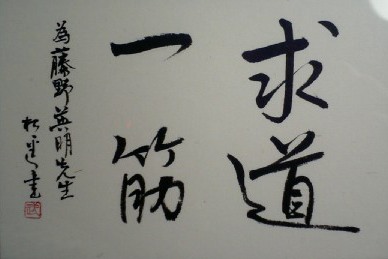 求道
一筋
為藤野英明先生
書